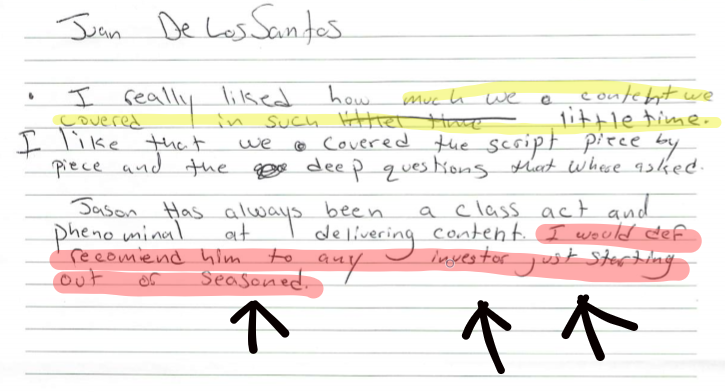 Juan De Los Santos
• I really liked how much we content we
covered in such littlel time little time.
I like that we covered the script piece by
piece and the deep questions that whose asked.
Jason Has always been a class act and
phenominal at delivering content. I would def
recomiend him to any investor just starting
out or seasoned.